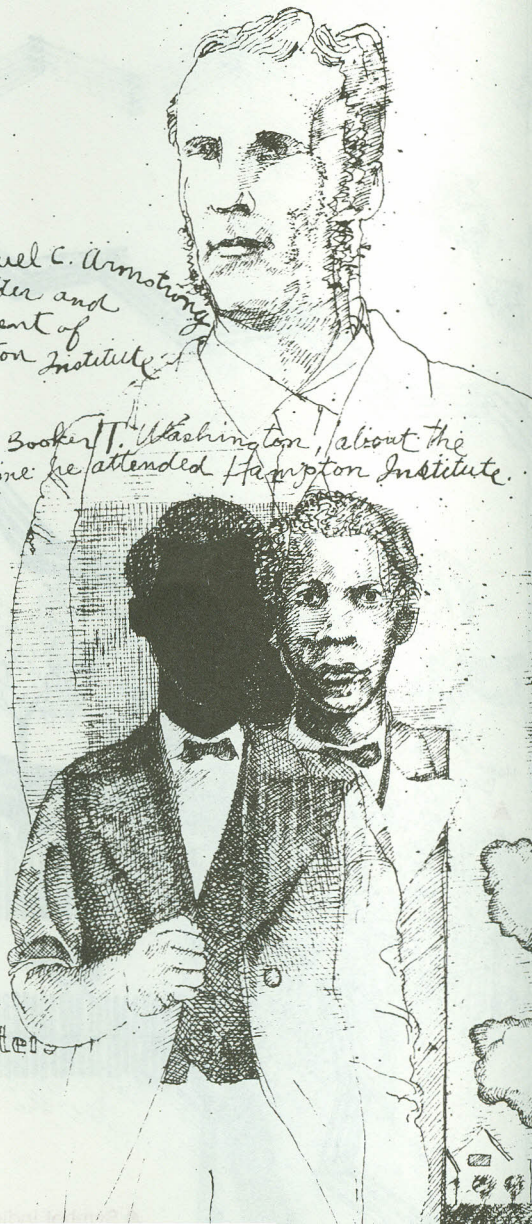 uel C. Armstrong
der and
ent of
ton Institute
Booker T. Washington, about the
me he attended Hampton Institute.